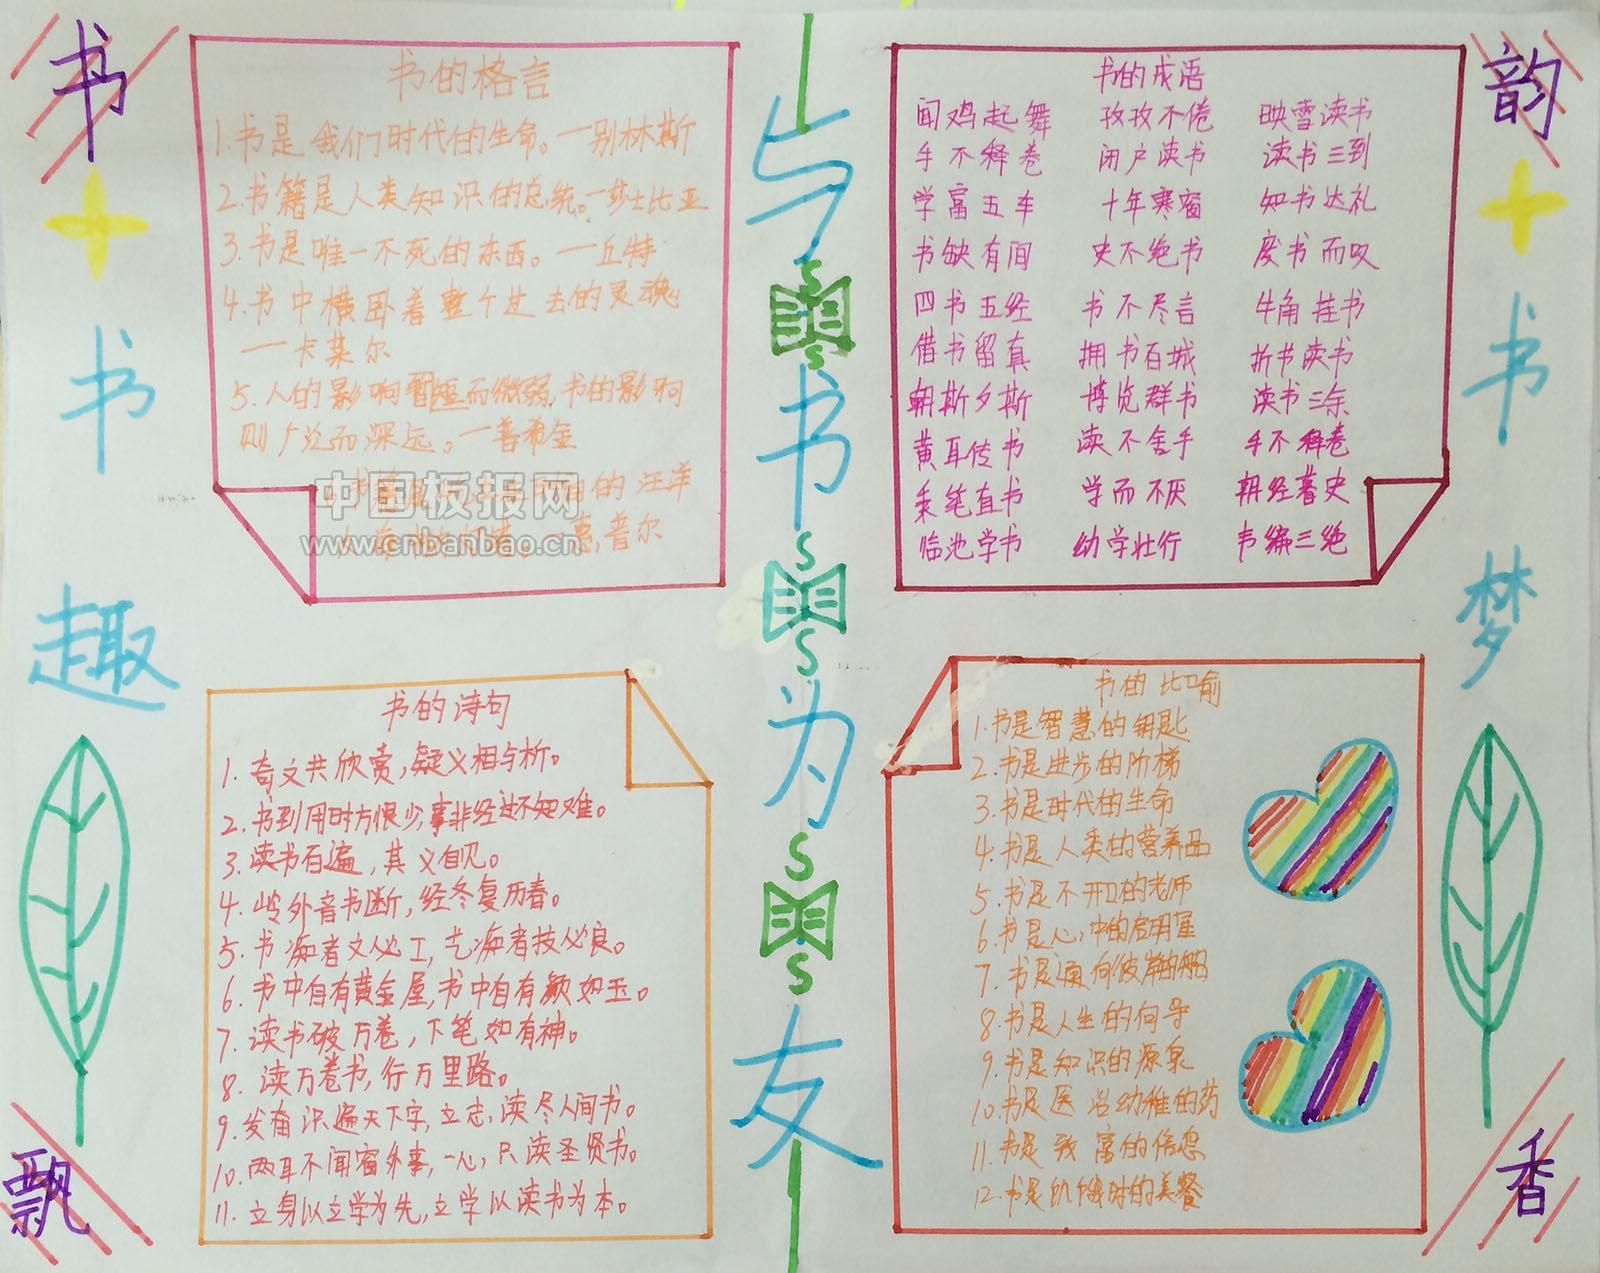 书
韵
书
趣
书
梦
飘
香
与
书
为
友
书的格言
1.书是我们时代的生命。一别林斯
2.书籍是人类知识的总统。一莎士比亚
3.书是唯一不死的东西。一丘特
4.书中横卧着整个过去的灵魂
一卡莱尔
5.人的影响暂短而微弱,书的影响
则广泛而深远。一普希金
的汪洋
惠普尔
中国板报网
www.cnbanbao.cn
书的成语
闻鸡起舞 孜孜不倦 映雪读书
手不释卷 闭户读书 读书三到
学富五车 十年寒窗 知书达礼
书缺有间 史不绝书 废书而叹
四书五经 书不尽言 牛角挂书
借书留真 拥书百城 折节读书
朝斯夕斯 博览群书 读书三余
黄耳传书 读不舍手 手不释卷
秉笔直书 学而不厌 朝经暮史
临池学书 幼学壮行 韦编三绝
书的诗句
1.奇文共欣赏,疑义相与析。
2.书到用时方恨少,事非经过不知难。
3.读书百遍,其义自见。
4.岭外音书断,经冬复历春。
5.书痴者文必工,艺痴者技必良。
6.书中自有黄金屋,书中自有颜如玉。
7.读书破万卷,下笔如有神。
8.读万卷书,行万里路。
9.发奋识遍天下字,立志读尽人间书。
10.两耳不闻窗外事,一心只读圣贤书。
11.立身以立学为先,立学以读书为本。
书的比喻
1.书是智慧的钥匙
2.书是进步的阶梯
3.书是时代的生命
4.书是人类的营养品
5.书是不开口的老师
6.书是心中的启明星
7.书是通向彼岸的船
8.书是人生的向导
9.书是知识的源泉
10.书是医治幼稚的药
11.书是致富的信息
12.书是饥饿时的美餐